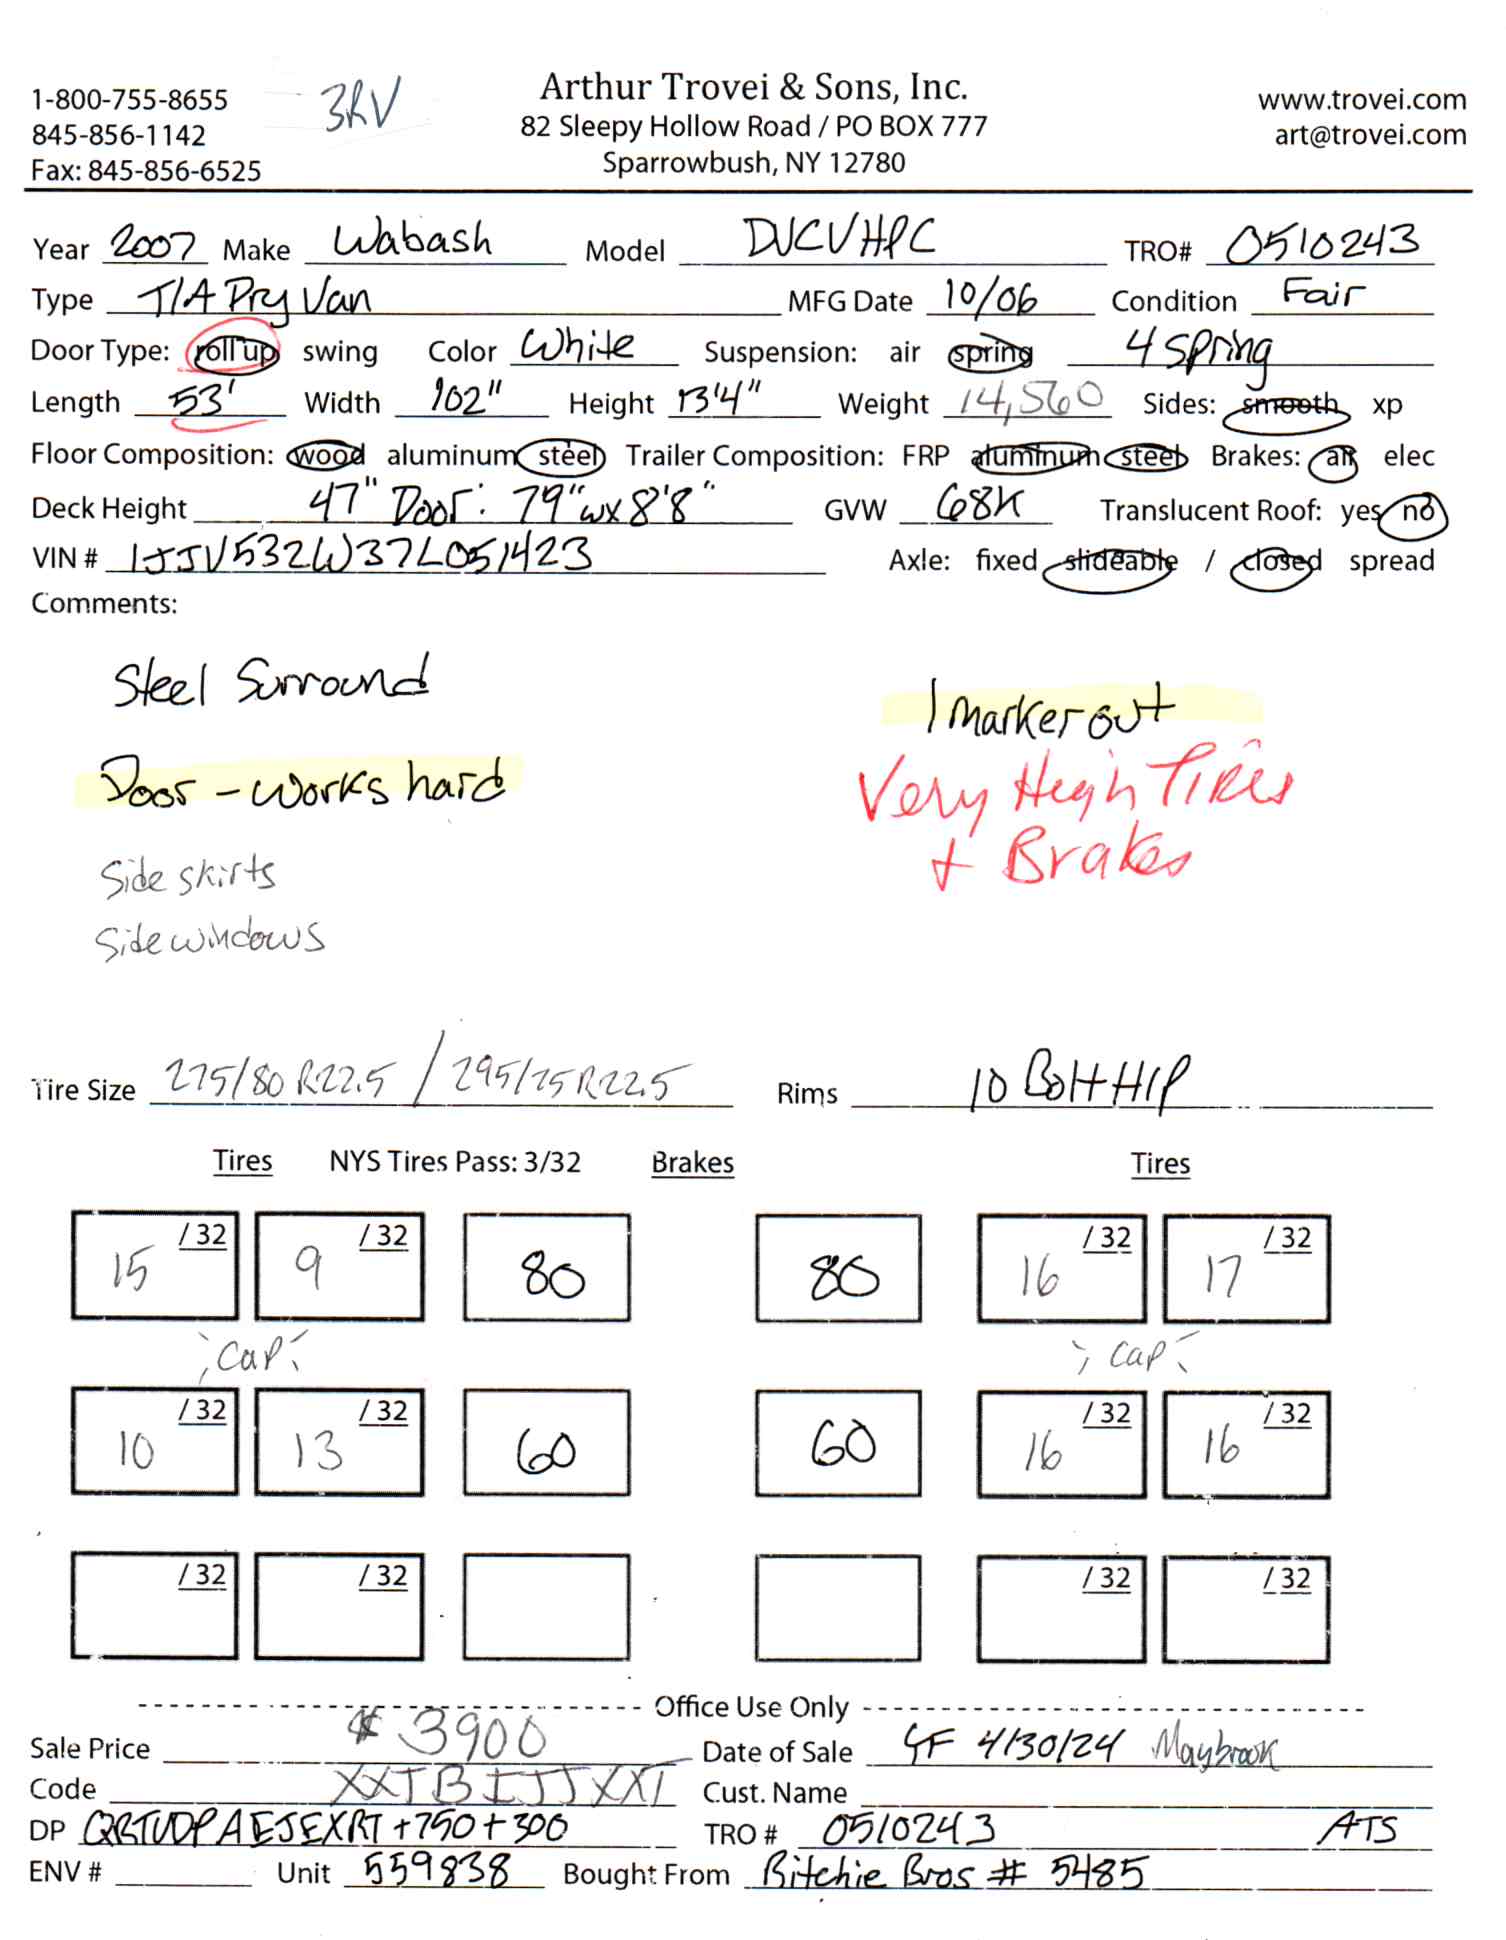 1-800-755-8655
845-856-1142
Fax: 845-856-6525
3RV
Arthur Trovei & Sons, Inc.
82 Sleepy Hollow Road / PO BOX 777
Sparrowbush, NY 12780
www.trovei.com
art@trovei.com
Year 2007 Make Wabash Model DVCVHPC TRO# 0510243
Type T/A Dry Van MFG Date 10/06 Condition Fair
Door Type: roll up swing Color White Suspension: air spring 4 Spring
Length 53' Width 102" Height 13'4" Weight 14,560 Sides: smooth xp
Floor Composition: wood aluminum steel Trailer Composition: FRP aluminum steel Brakes: air elec
Deck Height 47" Door: 79"w x 8'8" GVW 68K Translucent Roof: yes no
VIN # 1JJV532W37L051423 Axle: fixed slideable / closed spread
Comments:
Steel Surround
1 marker out
Door - works hard
Very High Tires
+ Brakes
Side skirts
Side windows
Tire Size 275/80R22.5 / 295/75R22.5 Rims 10 Bolt H/P
Tires NYS Tires Pass: 3/32 Brakes Tires
15 /32 9 /32 80 80 16 /32 17 /32
Cap Cap
10 /32 13 /32 60 60 16 /32 16 /32
/32 /32 /32 /32
Office Use Only
Sale Price $3900 Date of Sale GF 4/30/24 Maybrook
Code XXTBIJJXXT Cust. Name
DP QRTUDPAEJEXRT+750+300 TRO # 0510243 ATS
ENV # Unit 559838 Bought From Ritchie Bros # 5485